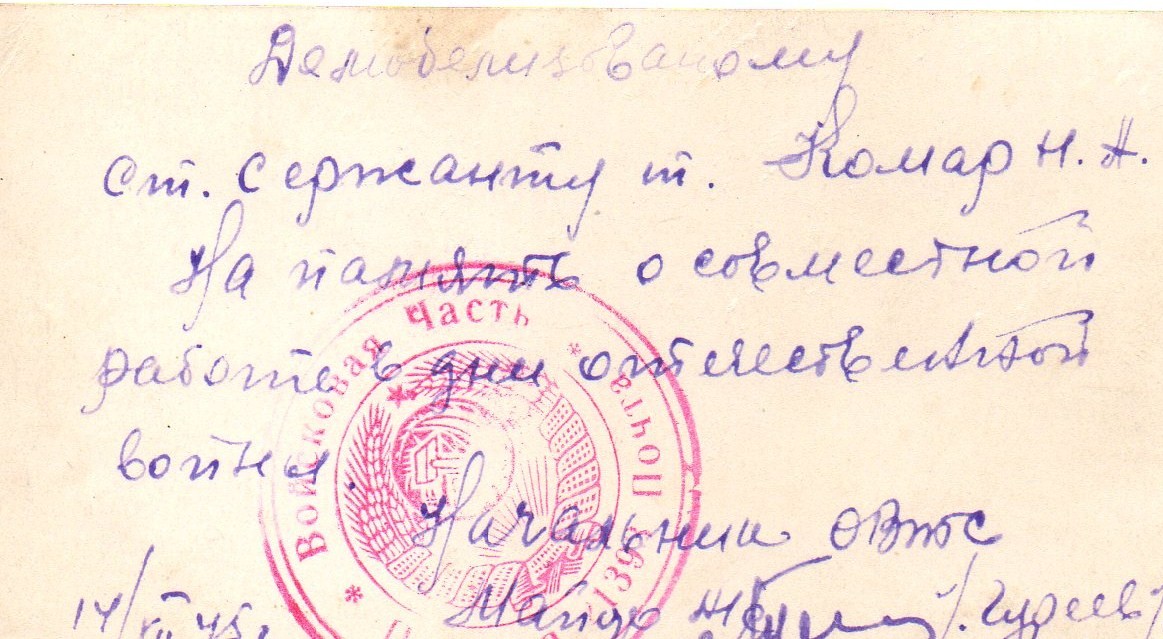 Демобелизованому
ст. сержанту т. Комар Н. А.
На память о совместной
работе в дни отечественной
войны.
Начальник
Майор
Войсковая Часть * Почта